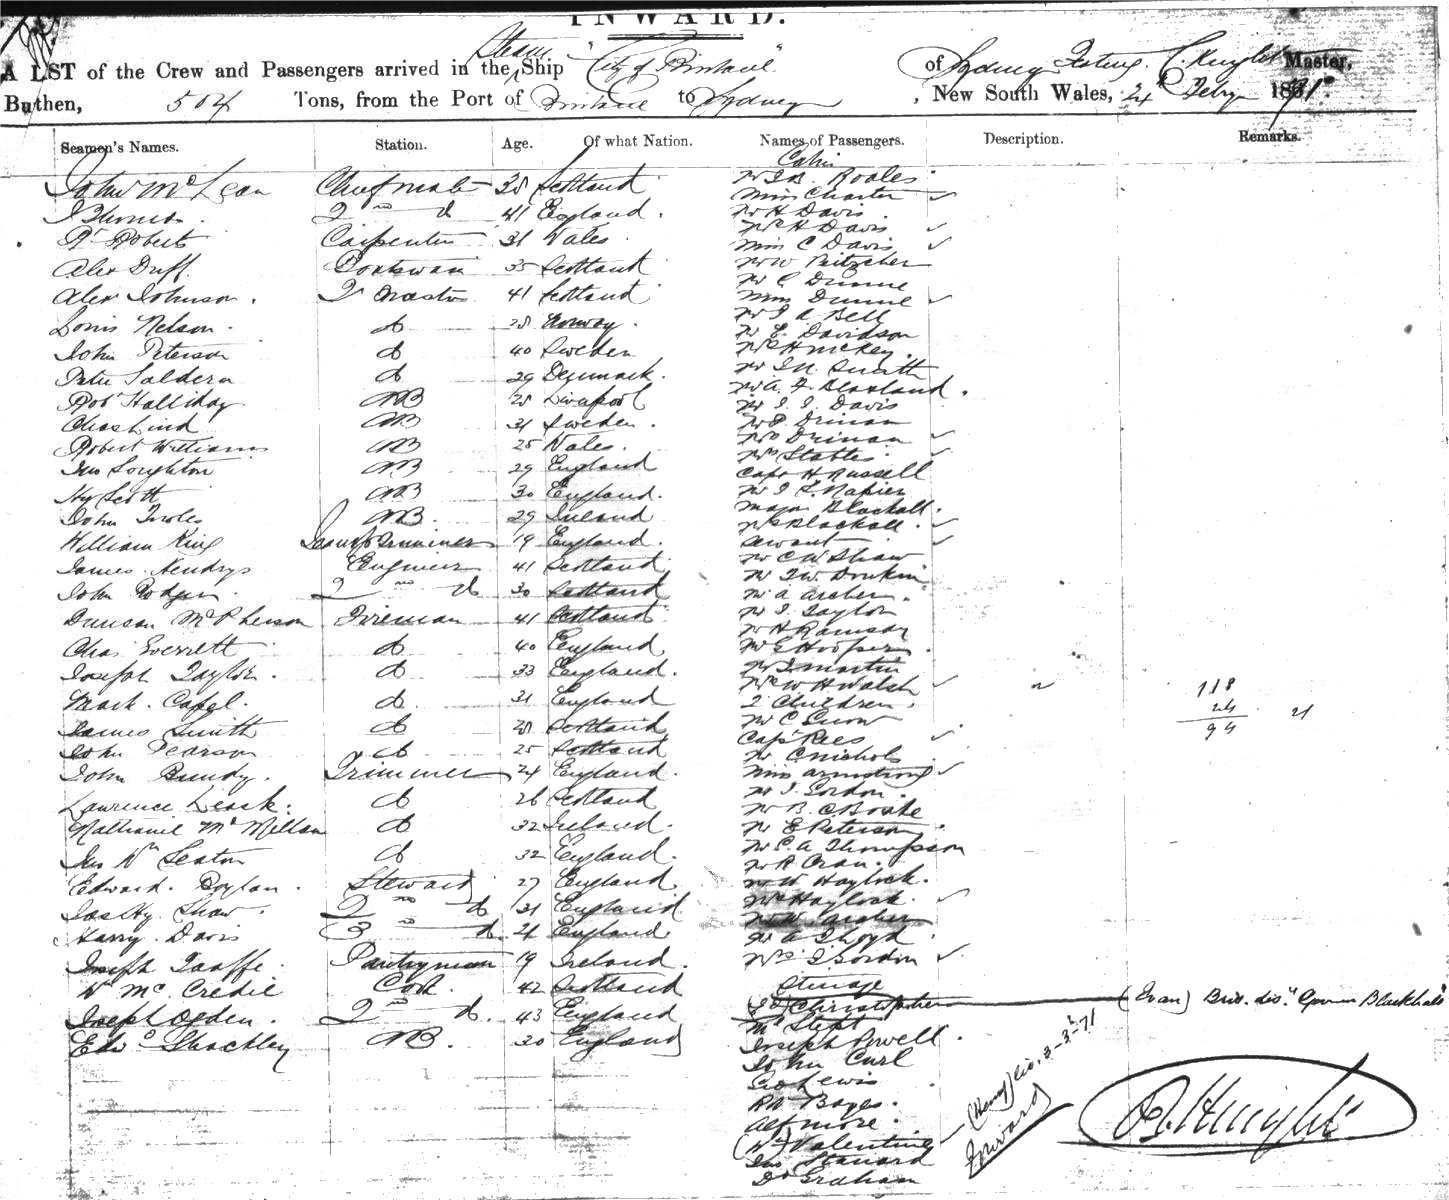 INWARD.
A LIST of the Crew and Passengers arrived in the Steam Ship "City of Brisbane" of Sydney Knight Master,
Burthen, 504 Tons, from the Port of Brisbane to Sydney, New South Wales, 24 Feby 1871.
Seamen's Names. Station. Age. Of what Nation. Names of Passengers. Description. Remarks.
John McLean Chief mate 38 Scotland
J Thomas 2nd do 41 England.
Wm Roberts Carpenter 31 Wales
Alex Duff Boatswain 35 Scotland
Alex Johnson. Masts 41 Scotland
Louis Nelson. do 28 Norway.
John Peterson do 40 Sweden
Peter Saldern do 29 Denmark.
Robt Halliday AB 28 Liverpool
Chas Lind AB 31 Sweden.
Robert Williams AB 25 Wales.
Jno Soughton AB 29 England
Hy Scott AB 30 England.
John Towles AB. 29 Ireland
William King Trimmer 19 England.
James Hendrys Engineer 41 Scotland
John Rodger 2nd do 30 Scotland
Duncan McPherson Fireman 41 Scotland
Chas Everrett do 40 England
Joseph Taylor. do 33 England.
Mark Capel. do 31 England
James Smith do 28 Scotland
John Pearson do 25 Scotland
John Bundy. Trimmer 24 England.
Lawrence Leask. do 26 Scotland
Nathaniel McMillan do 32 Ireland.
Jno Wm Seaton do 32 England.
Edward Boylan. Steward 27 England
Jas Hy Shaw. 2nd do 31 England
Harry Davis 3rd do 21 England
Joseph Taaffe Pantryman 19 Ireland.
W McCredie Cook 42 Scotland
Joseph Ogden. 2nd do. 43 England
Edwd Shackley AB. 30 England
Cabin
Mr J B. Boales
Miss Charter
Mr H Davis
Mrs H Davis
Miss C Davis
Mr W Pritzcher
Mr C Dunne
Miss Dunne
Mr J A Bell
Mr E. Davidson
Mrs Hinckey.
Mr J N. Smith
Mr A. F. Blaxland.
Mr J. J. Davis
Mr Drinan
Mrs Drinan
Mrs Stables
Capt H Russell
Mr J S. Napier
Major Blackall.
Mrs Blackall.
Servant
Mr C W Shaw
Mr J W. Donkin
Mr A Archer.
Mr J. Taylor
Mr H Ramsay
Mr E Hooper.
Mr J Martin
Mrs W H Walsh
2 Children.
Mr C Snow
Capt Rees
Mr C Nichols
Miss Armstrong
Mr J. Gordon.
Mr B. C. Boake
Mr E Peterson
Mr C. A Thompson
Mr R Cran.
Mr W Haylock.
Mrs Haylock.
Mr W Archer
Mr A Lloyd
Mrs J. Gordon
Steerage
Jo Christopher (Evan)
Mr Slept
Joseph Powell.
John Curl
Geo Lewis
R W Bages.
Alf more.
(Wm) Valentine
Jno Stanard
Dr Graham
118
24
94
21
(Henry) 3-3-71
Forward
C Knight